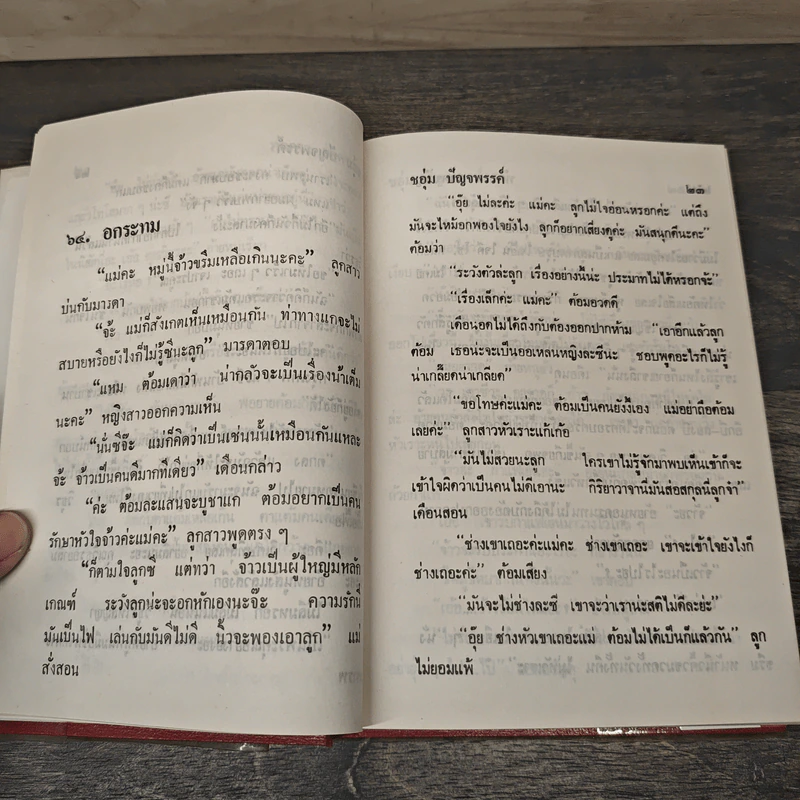 ๖๔. อกระทม
"แม่คะ หมู่นี้จ้าวขรึมเหลือเกินนะคะ" ลูกสาว
บ่นกับมารดา
"จ้ะ แม่ก็สังเกตเห็นเหมือนกัน ท่าทางแกจะไม่
สบายหรือยังไงก็ไม่รู้ซีนะลูก" มารดาตอบ
"แหม ต้อมเดาว่า น่ากลัวจะเป็นเรื่องน้าเต็ม
นะคะ" หญิงสาวออกความเห็น
"นั่นซีจ๊ะ แม่ก็คิดว่าเป็นเช่นนั้นเหมือนกันแหละ
จ้ะ จ้าวเป็นคนดีมากทีเดียว" เดือนกล่าว
"ค่ะ ต้อมละแสนจะบูชาแก ต้อมอยากเป็นคน
รักษาหัวใจจ้าวค่ะแม่คะ" ลูกสาวพูดตรง ๆ
"ก็ตามใจลูกซี แต่ทว่า จ้าวเป็นผู้ใหญ่มีหลัก
เกณฑ์ ระวังลูกน่ะจะอกหักเองนะจ๊ะ ความรักนี่
มันเป็นไฟ เล่นกับมันดีไม่ดี นิ้วจะพองเอาลูก" แม่
สั่งสอน
ชอุ่ม ปัญจพรรค์
๒๓
"อุ๊ย ไม่ละค่ะ แม่คะ ลูกไม่ใจอ่อนหรอกค่ะ แต่ถึง
มันจะไหม้อกพองใจยังไง ลูกก็อยากเสี่ยงดูค่ะ มันสนุกดีนะคะ"
ต้อมว่า
"ระวังตัวล่ะลูก เรื่องอย่างนี้น่ะ ประมาทไม่ได้หรอกจ้ะ"
"เรื่องเล็กค่ะ แม่คะ" ต้อมอวดดี
เดือนอดไม่ได้ถึงกับต้องออกปากห้าม "เอาอีกแล้วลูก
ต้อม เธอน่ะจะเป็นออเหลนหญิงละซีนะ ชอบพูดอะไรก็ไม่รู้
น่าเกลี๊ยดน่าเกลียด"
"ขอโทษค่ะแม่คะ ต้อมเป็นคนยังงี้เอง แม่อย่าถือต้อม
เลยค่ะ" ลูกสาวหัวเราะแก้เก้อ
"มันไม่สวยนะลูก ใครเขาไม่รู้จักมาพบเห็นเข้าก็จะ
เข้าใจผิดว่าเป็นคนไม่ดีเอานะ กิริยาวาจานี่มันส่อสกุลนี่ลูกจ๋า"
เดือนสอน
"ช่างเขาเถอะค่ะแม่คะ ช่างเขาเถอะ เขาจะเข้าใจยังไงก็
ช่างเถอะค่ะ" ต้อมเสียง
"มันจะไม่ช่างละซี เขาจะว่าเราน่ะสติไม่ดีละย่ะ"
"อุ๊ย ช่างหัวเขาเถอะแม่ ต้อมไม่ได้เป็นก็แล้วกัน" ลูก
ไม่ยอมแพ้